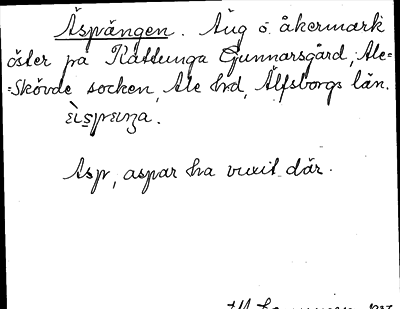 Äspängen. Äng o. åkermark
öster på Kattunga Gunnarsgård, Ale=
=Skövde socken, Ale hrd, Älfsborgs län.
Asp, aspar ha vuxit där.